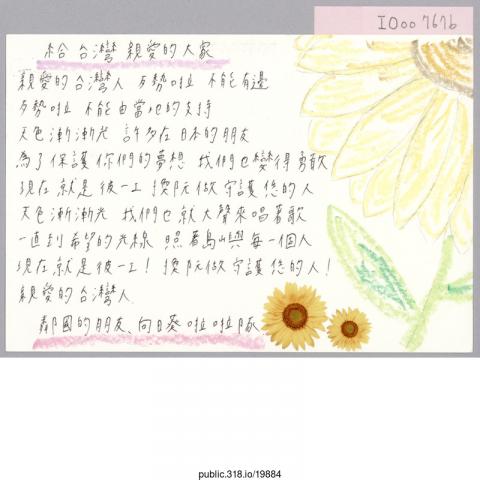 IO007676
給 台灣 親愛的大家
親愛的台灣人 歹勢啦 不能有邊
歹勢啦 不能由當地的支持
天色漸漸光 許多在日本的朋友
為了保護你們的夢想 我們也變得勇敢
現在就是彼一工 換阮做守護恁的人
天色漸漸光 我們也就大聲來唱著歌
一直到希望的光線 照著島嶼每一個人
現在就是彼一工！換阮做守護恁的人！
親愛的台灣人
鄰國的朋友、向日葵啦啦隊
public.318.io/19884